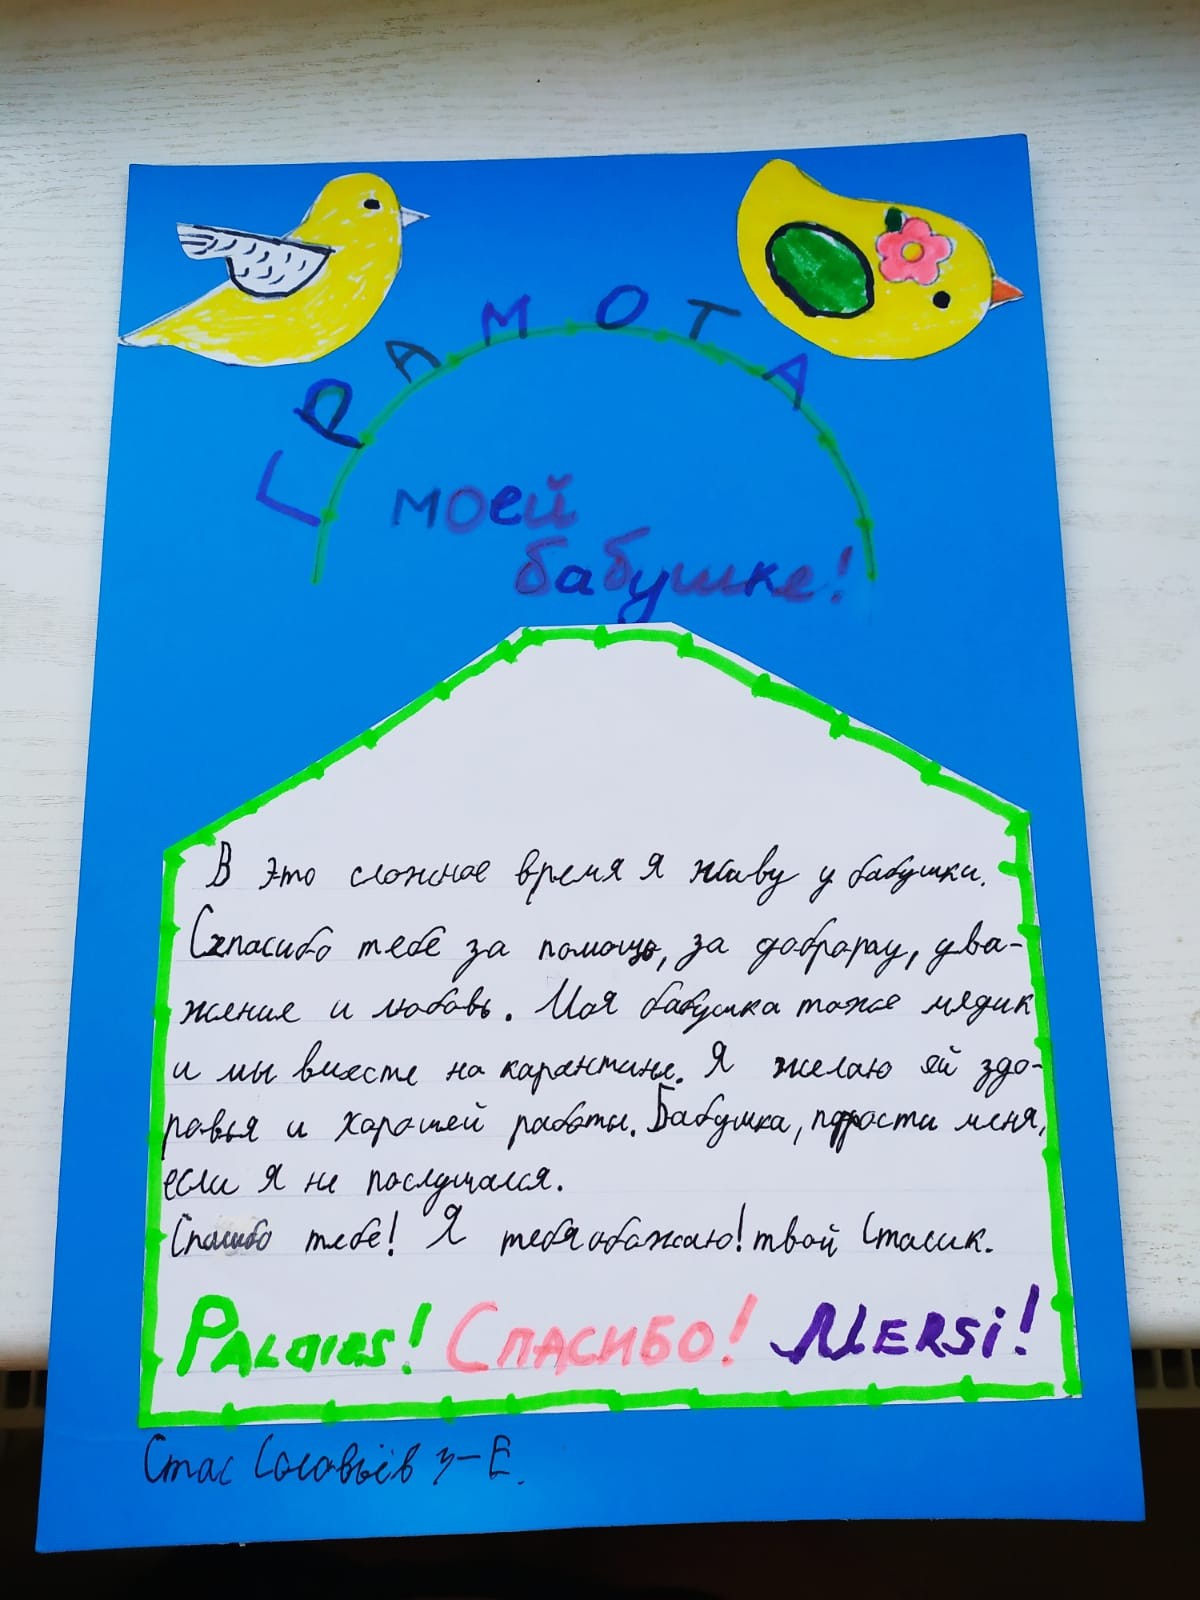 ГРАМОТА
моей
бабушке!
В это сложное время я живу у бабушки.
Спасибо тебе за помощь, за доброту, ува-
жение и любовь. Моя бабушка тоже медик
и мы вместе на карантине. Я желаю ей здо-
ровья и хорошей работы. Бабушка, прости меня,
если я не послушался.
Спасибо тебе! Я тебя обажаю! твой Стасик.
PALDIES! СПАСИБО! MERSi!
Стас Соловьёв 3-Е.